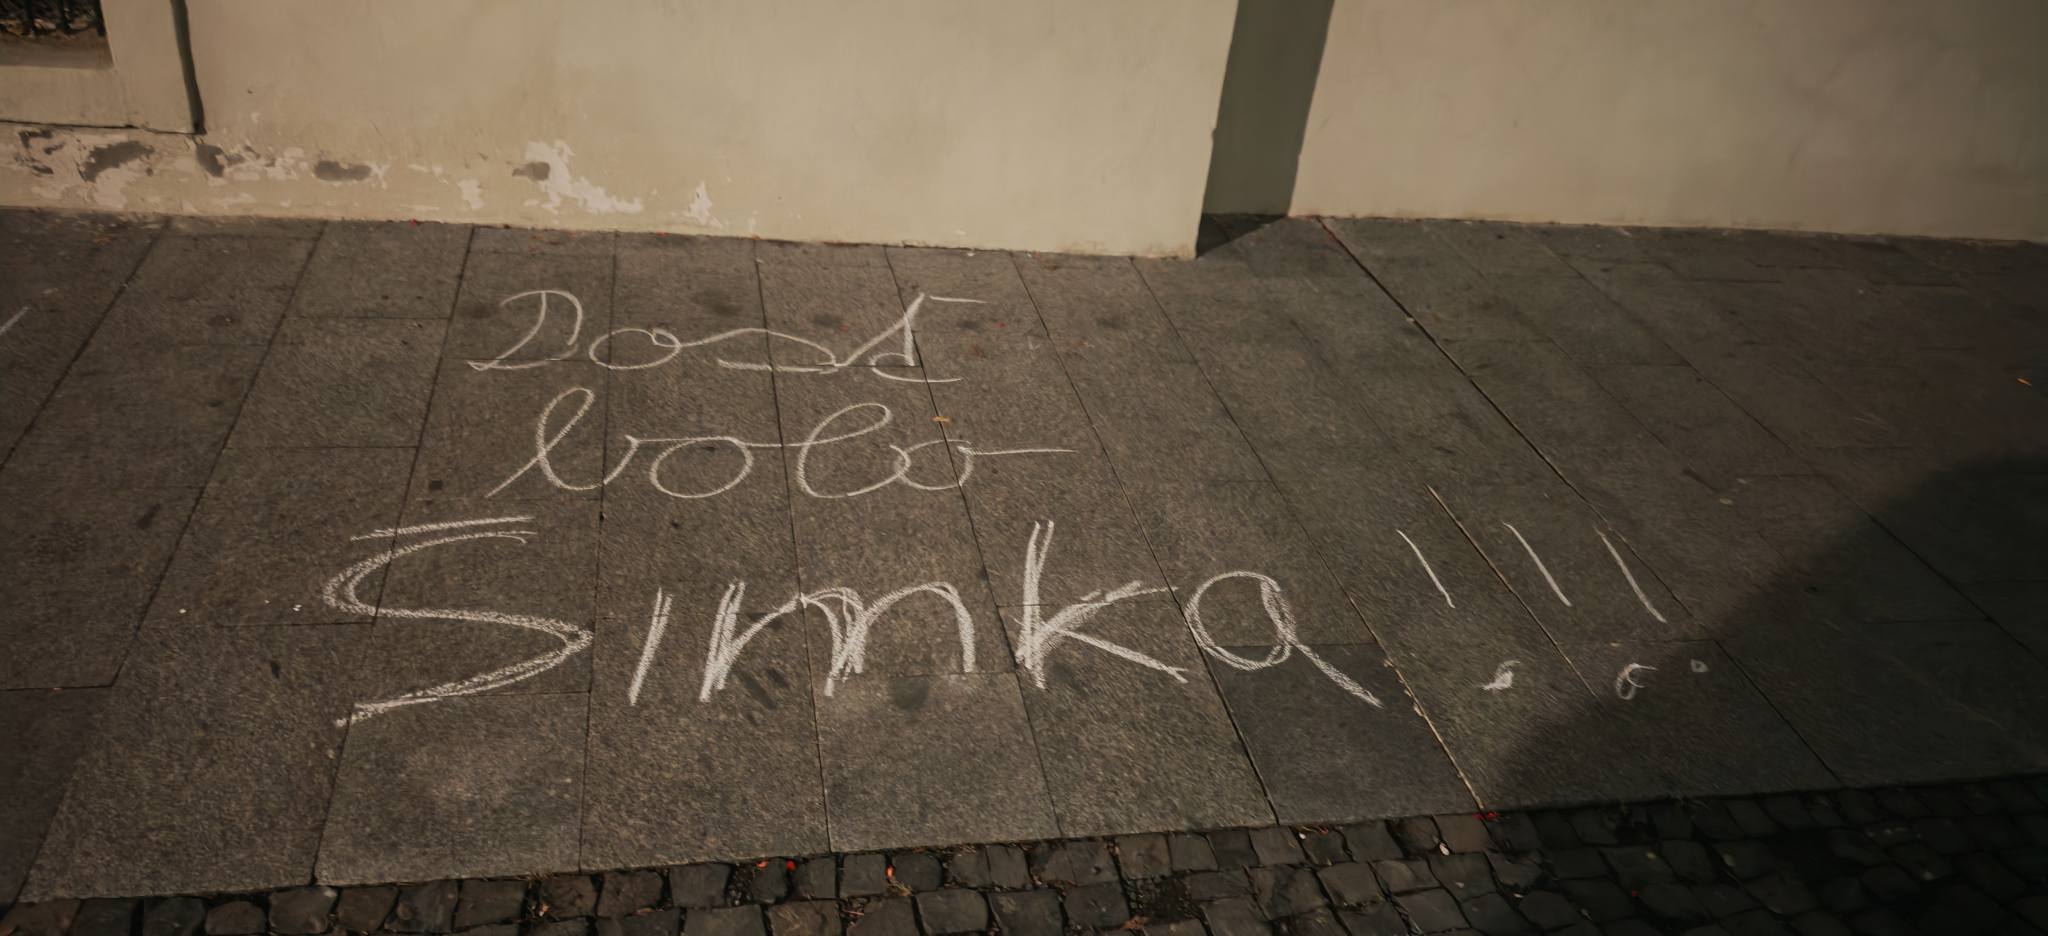 Dosť
bolo
Šimka!!!